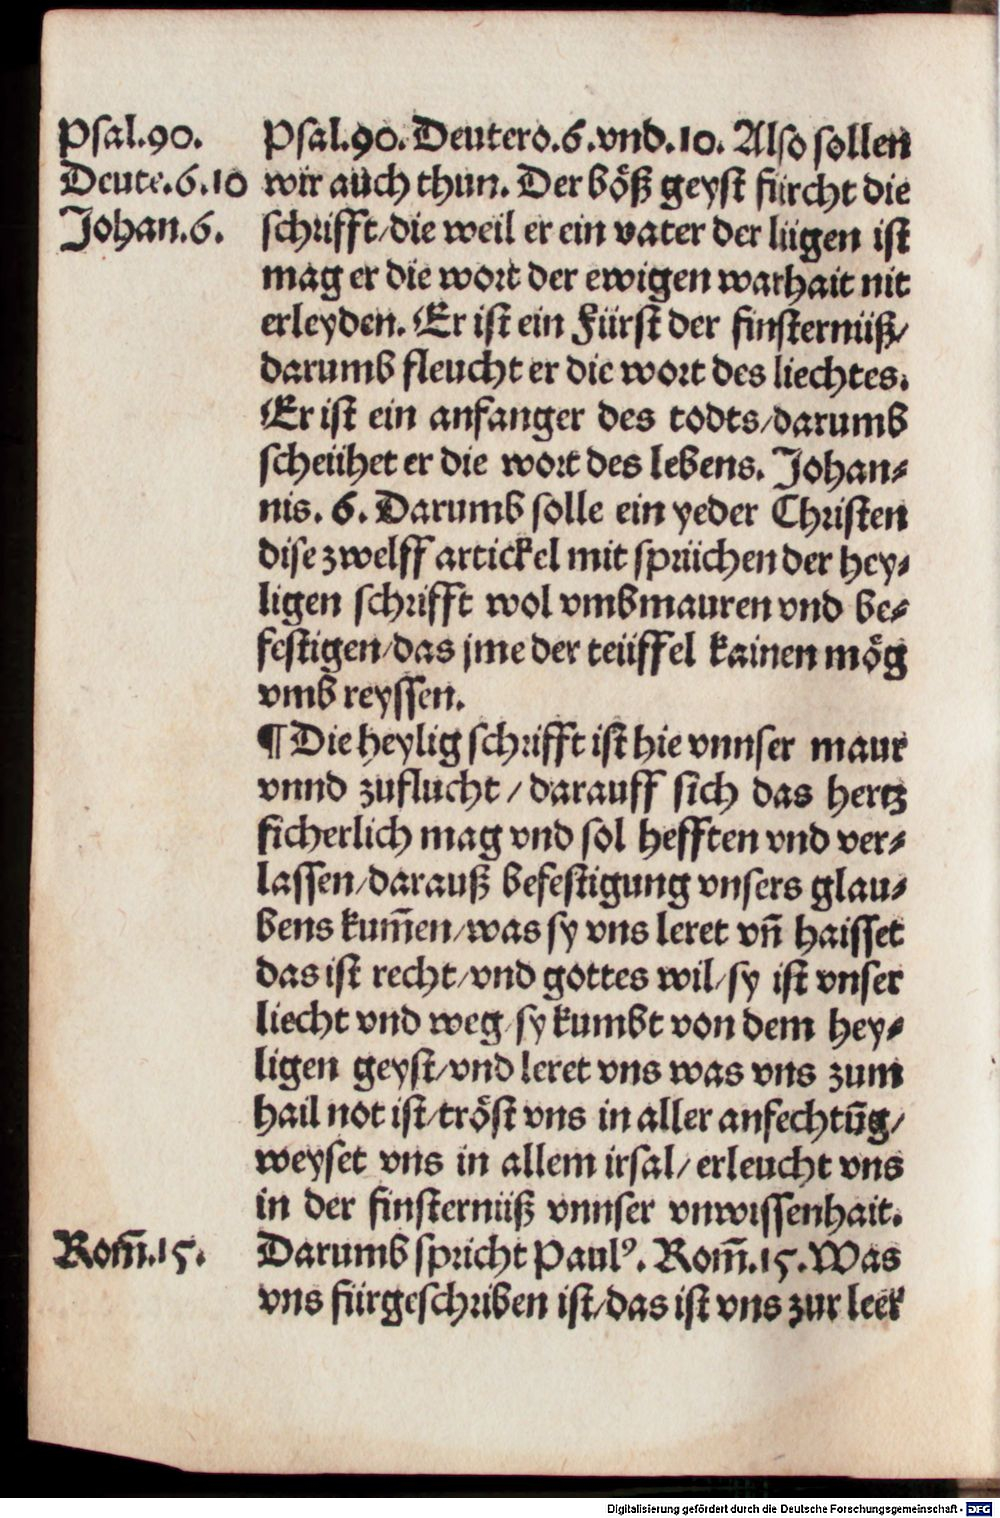 Psal.90.
Deute.6.10
Johan.6.
Psal.90. Deutero.6.vnd.10. Also sollen
wir auch thun. Der böß geyst fürcht die
schrifft/die weil er ein vater der lügen ist
mag er die wort der ewigen warhait nit
erleyden. Er ist ein Fürst der finsternüß/
darumb fleucht er die wort des liechtes.
Er ist ein anfanger des todts/darumb
scheühet er die wort des lebens. Johan⸗
nis. 6. Darumb solle ein yeder Christen
dise zwelff artickel mit sprüchen der hey⸗
ligen schrifft wol vmbmauren vnd be⸗
festigen/das jme der teüffel kainen mög
vmb reyssen.
¶ Die heylig schrifft ist hie vnnser maur
vnnd zuflucht / darauff sich das hertz
sicherlich mag vnd sol hefften vnd ver⸗
lassen/darauß befestigung vnsers glau⸗
bens kum̃en/was sy vns leret vñ haisset
das ist recht/vnd gottes wil/sy ist vnser
liecht vnd weg/sy kumbt von dem hey⸗
ligen geyst/vnd leret vns was vns zum
hail not ist/tröst vns in aller anfechtũg/
weyset vns in allem irsal/erleucht vns
in der finsternüß vnnser vnwissenhait.
Rom̃.15.
Darumb spricht Paulꝰ. Rom̃.15. Was
vns fürgeschriben ist/das ist vns zur leer
Digitalisierung gefördert durch die Deutsche Forschungsgemeinschaft - DFG